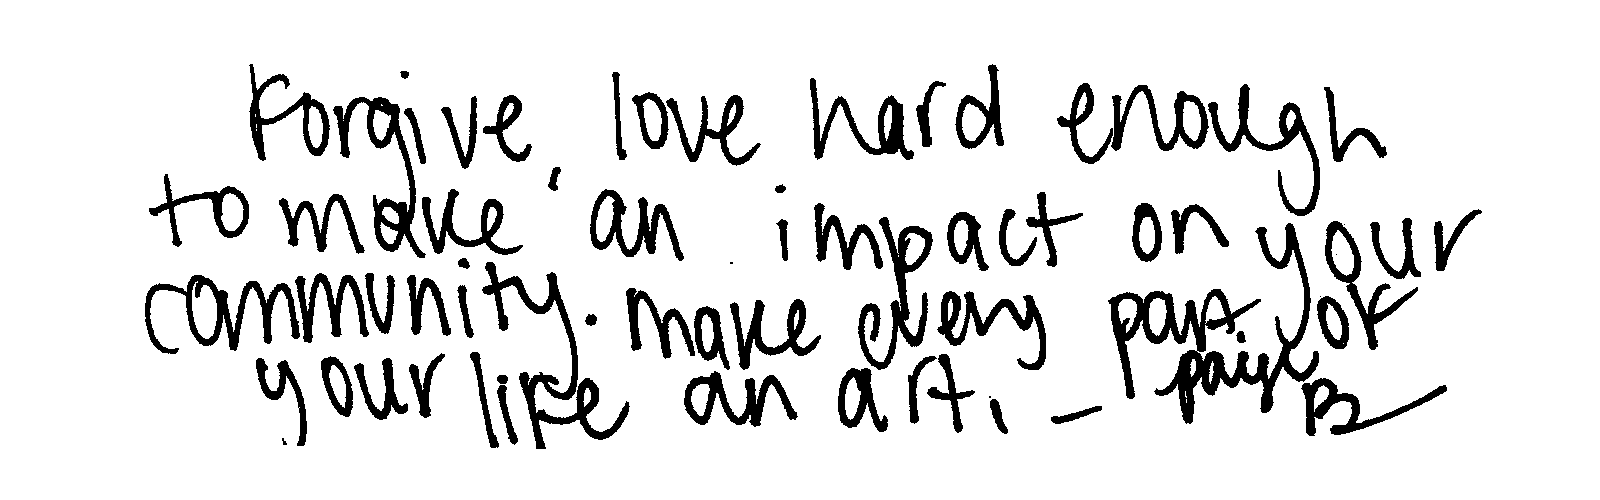 Forgive, love hard enough
to make an impact on your
community. make every part of
your life an art. - paige B